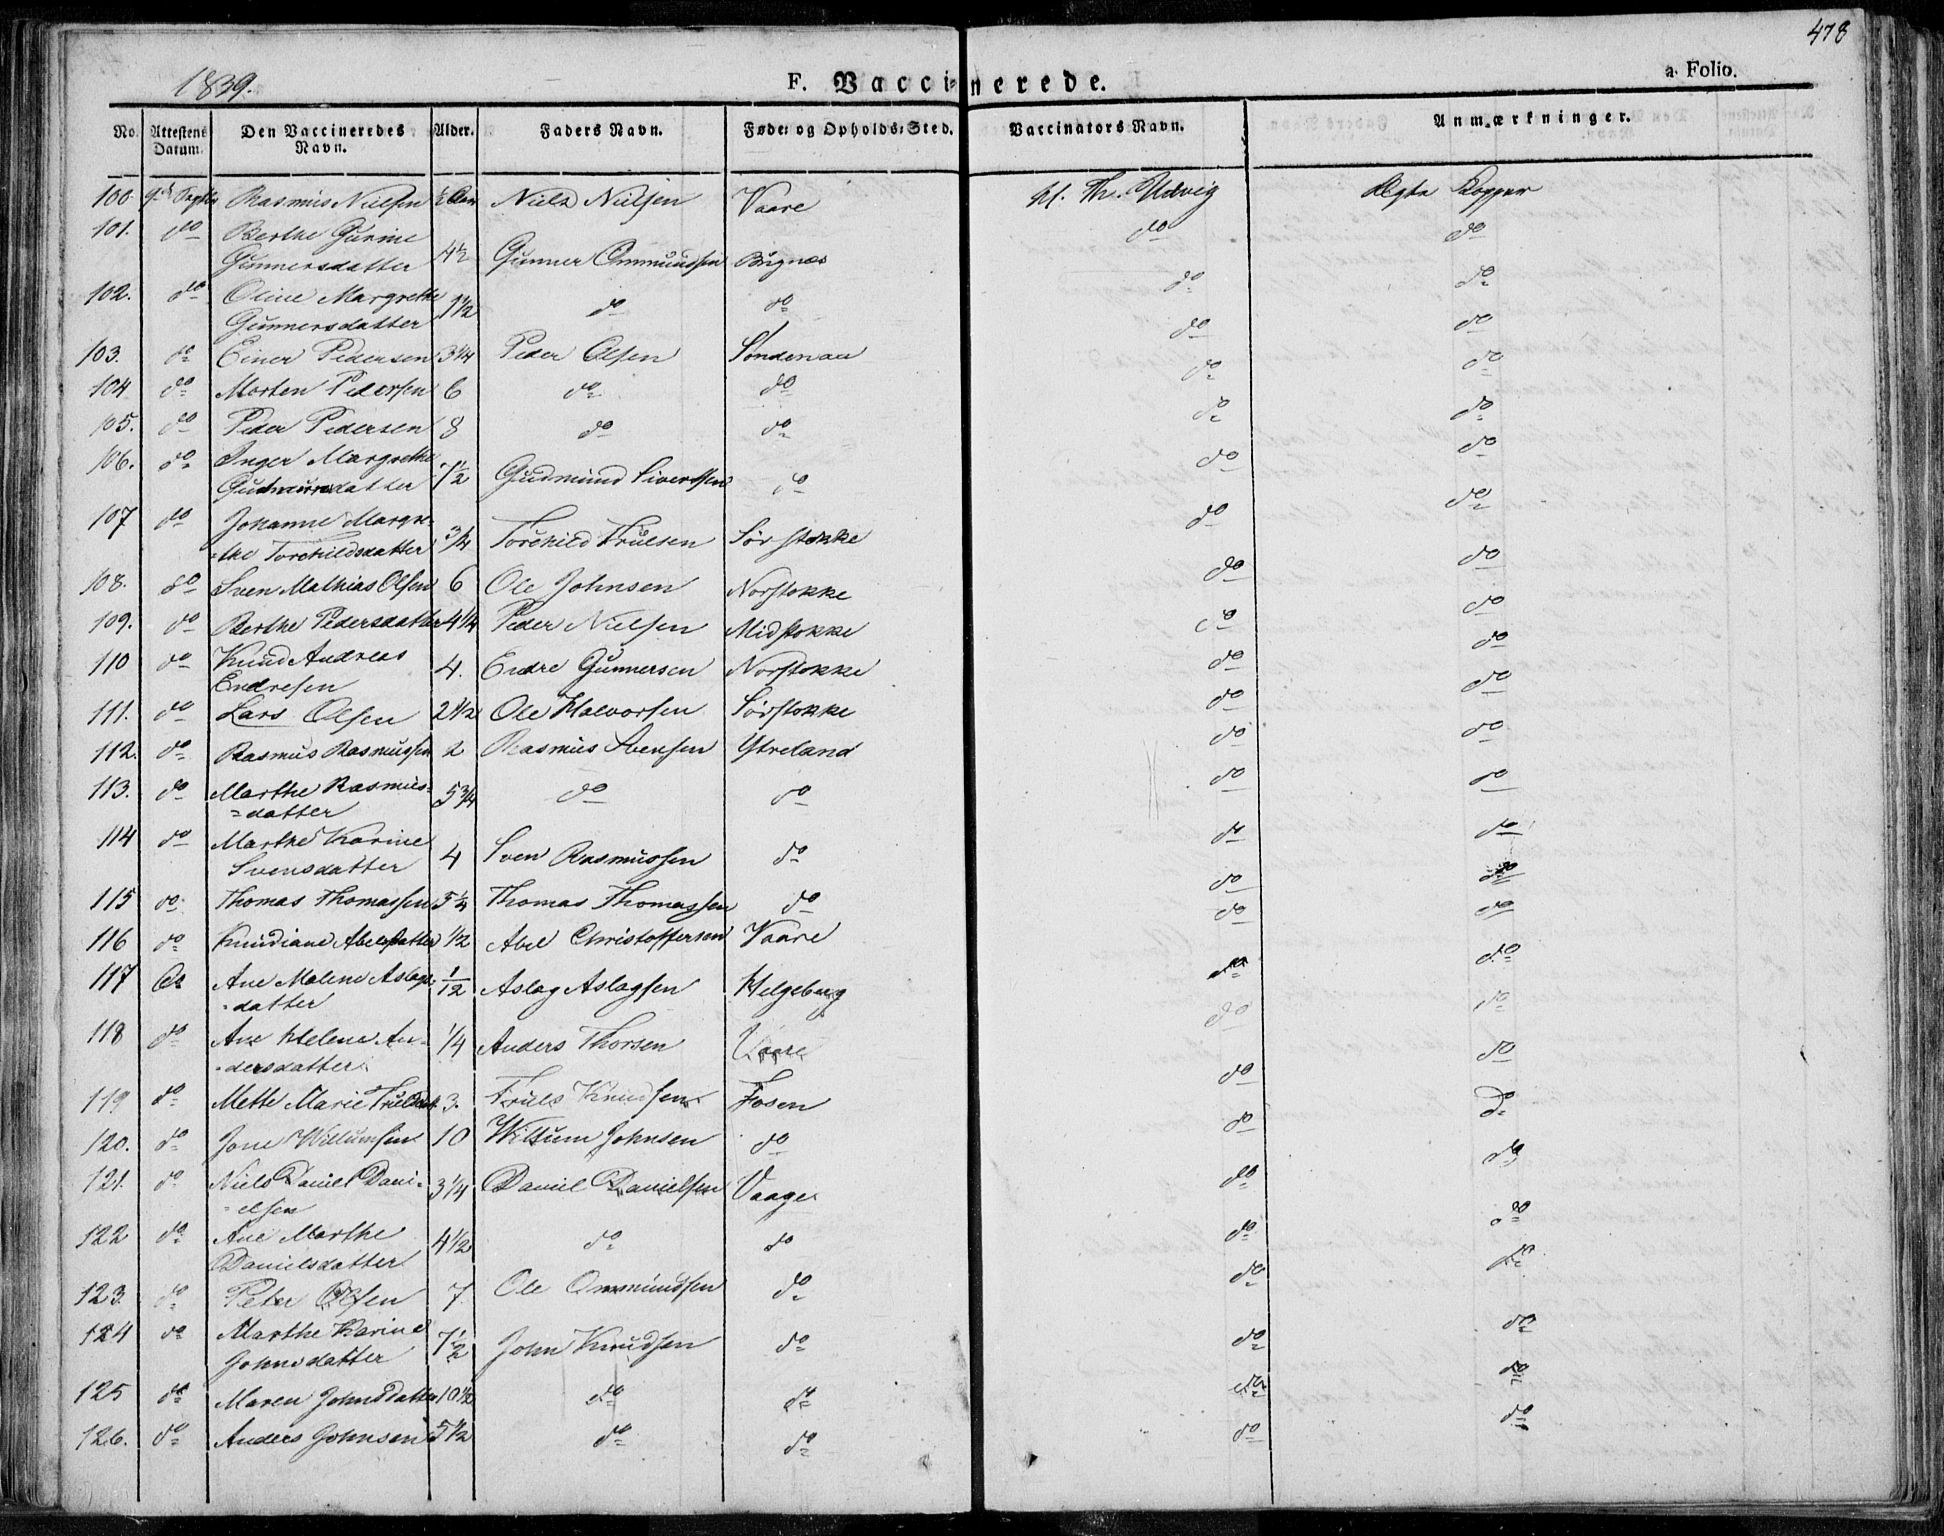 478
1839.
F. Vaccinerede.
a. Folio.
No. Attestens Datum. Den Vaccineredes Navn. Alder. Faders Navn. Føde- og Opholds-Sted. Vaccinators Navn. Anmærkninger.
100. 9de Rasmus Nielsen ½ Aar Niels Nielsen Vaare Th. Udvig Ægte Kopper
101. do Berthe Gurine
Gunnersdatter 4½ Gunner Ommundsen Bugnæs do do
102. do Oline Margrethe
Gunnersdatter 1½ do do do do
103. do Einer Pedersen 3¼ Peder Olsen Søndenaa do do
104 do Morten Pedersen 6 do do do do
105. do Peder Pedersen 8 do do do do
106. do Inger Margrethe
Gudmunsdatter 1½ Gudmund Sivertsen do do do
107 do Johanne Margre-
=the Torchildsdatter ¾ Torchild Trulsen Sørstokke do do
108. do Sven Mathias Olsen 6 Ole Johnsen Norstokke do do
109. do Berthe Pedersdatter 4¼ Peder Nielsen Midstokke do do
110 do Knud Andreas
Endresen 4. Endre Gunnersen Norstokke do do
111. do Lars Olsen 2½ Ole Halvorsen Sørstokke do do
112. do Rasmus Rasmussen 2 Rasmus Svensen Ytreland do do
113. do Marthe Rasmus=
=datter 5¾ do do do do
114 do Marthe Karine
Svensdatter 4 Sven Rasmussen do do do
115 do Thomas Thomassen 5¼ Thomas Thomassen do do do
116 do Knudiane Abelsdatter ½ Abel Christoffersen Vaare do do
117 do Ane Malene Aslags-
=datter 1/12 Aslag Aslagsen Helgeberg do do
118 do Ane Helene An-
-dersdatter ¼ Anders Thorsen Vaare do do
119 do Mette Marie 3. Truls Knudsen Fosen do do
120. do Jone Willumsen 10 Willum Johnsen do do do
121. do Niels Daniel Dani-
=elsen 3¼ Daniel Danielsen Vaage do do
122 do Ane Marthe
Danielsdatter 4½ do do do do
123. do Peter Olsen 7 Ole Ommundsen do do do
124 do Marthe Karine
Johnsdatter 7½ John Knudsen do do do
125 do Maren Johnsdatter 10½ do do do do
126. do Anders Johnsen 5½ do do do do